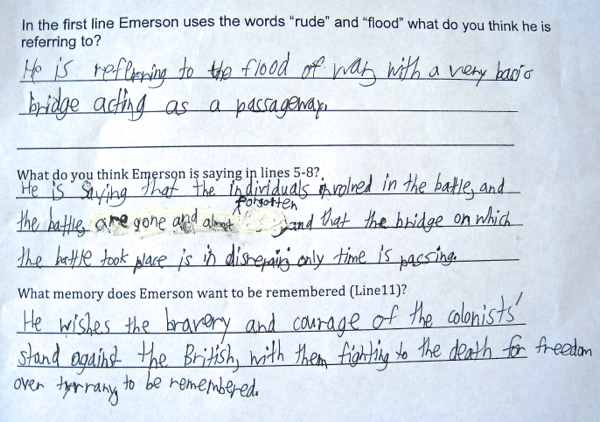 In the first line Emerson uses the words “rude” and “flood” what do you think he is
referring to?
He is reffering to the flood of war, with a very basic
bridge acting as a passageway.
What do you think Emerson is saying in lines 5-8?
He is saying that the individuals involved in the battle, and
forgotten
the battle, are gone and almost and that the bridge on which
the battle took place is in disrepair; only time is passing.
What memory does Emerson want to be remembered (Line11)?
He wishes the bravery and courage of the colonists'
stand against the British, with them fighting to the death for freedom
over tyrrany, to be remembered.